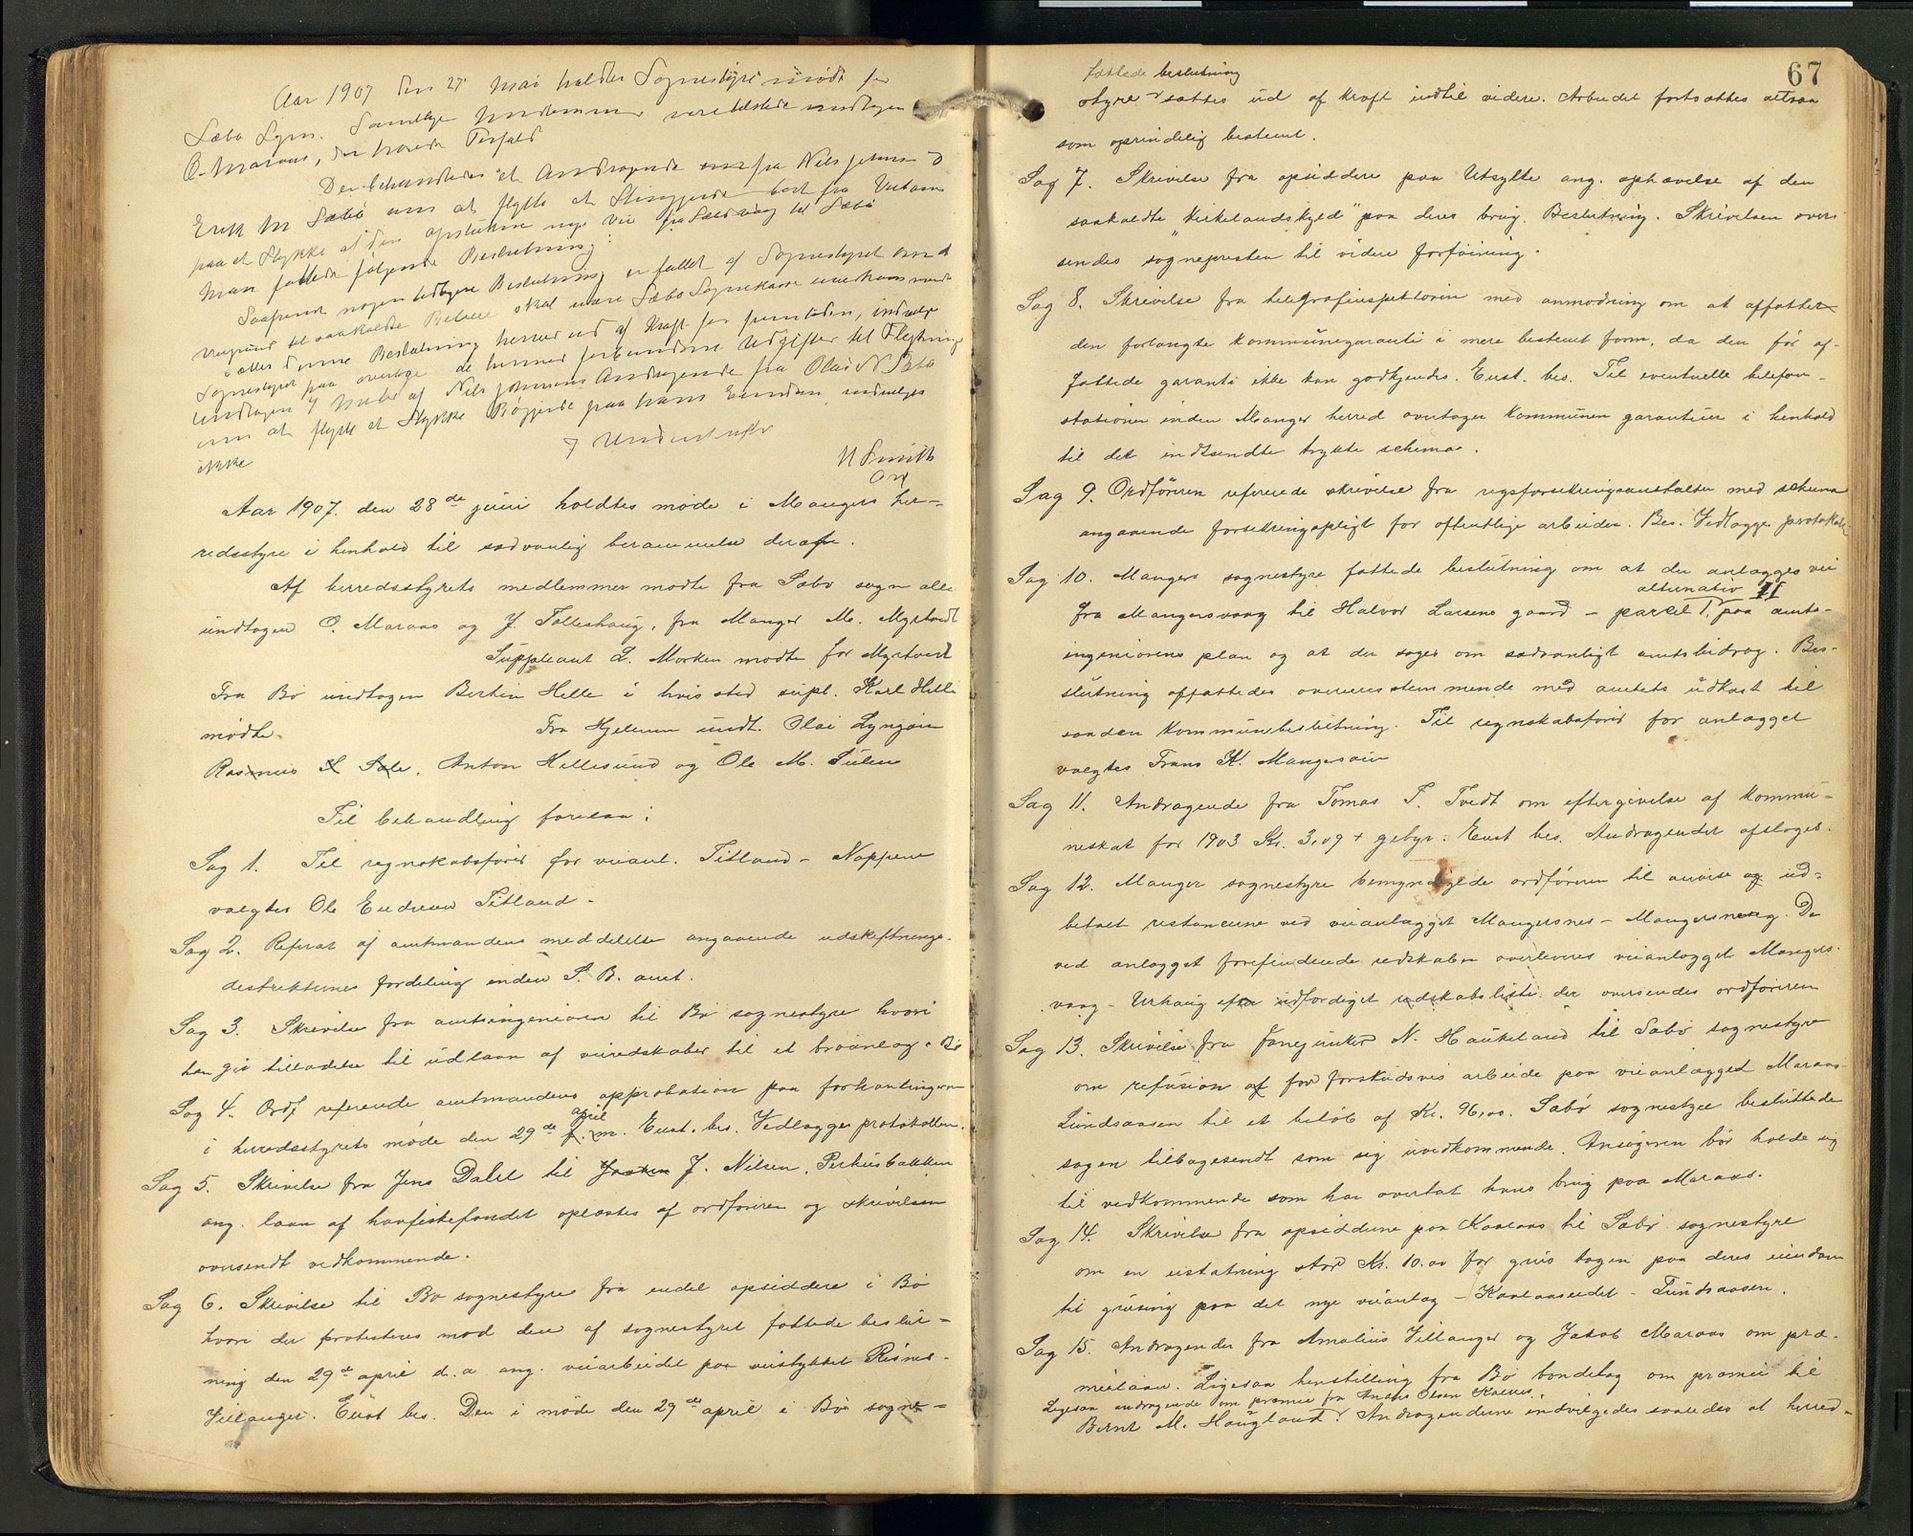 Aar 1907 den 27 Mai holdtes Sognestyremøde for
Sæbø Sogn. Samtlige Medlemmer vare tilstede undtagen
O. Maraas, der havde Forfald
Der behandledes et Andragende fra Nils Johnsen &
Erik M Sæbø om at flytte et Stengjerde bort fra
paa et Stykke af den nye Vei fra til Sæbø
Man fattede følgende Beslutning:
Saafremt nogen tidligere Beslutning er fattet af Sognestyret om
saakaldte skal være Sæbø Sognekasse
sættes denne Beslutning herved ud af Kraft for fremtiden,
Sognestyret paa overtage de hermed forbundne Udgifter til Flytning
undtagen af Nils Johnsens Andragende fra Olai N Sæbø
om at flytte et Stykke paa hans Eiendom, indvilges
ikke
Underskrifter
N Smith
Ord
Aar 1907. den 28de juni holdtes møde i Mangers her-
redsstyre i henhold til sædvanlig berammelse derom.
Af herredsstyrets medlemmer mødte fra Sæbø sogn alle
undtagen O. Maraas og J. Tolleshaug, fra Manger M. Myrtvedt
Suppleant L. Morken mødte for Myrtvedt
Fra Bø undtagen Bertin Helle i hvis sted supl. Karl Helle
mødte. Fra Hjelmen undt. Olai Lyngøin
Rasmus Anton Hellesund og Ole M. Sulen
Til behandling forelaa:
Sag 1. Til regnskabsfører for veianl. Titland - Noppene
valgtes Ole Endresen Titland.
Sag 2. Referat af amtmandens meddelelse angaaende udskiftnings-
destrikternes fordeling inden S. B. amt.
Sag 3. Skrivelse fra amtsingeniøren til Bø sognestyre hvori
han gir tilladelse til udlaan af veiredskaber til et broanlæg i Bø
Sag 4. Ordf. refererede amtmandens approbation paa forhandlingerne
april
i herredsstyrets møde den 29de f. m. Enst. bes. Vedlægges protokollen.
Sag 5. Skrivelse fra Jens Dahl til J. Nilsen,
ang. laan af havfiskefondet oplæstes af ordføreren og skrivelsen
oversendt vedkommende.
Sag 6. Skrivelse til Bø sognestyre fra endel opsiddere i Bø
hvori der protesteres mod den af sognestyret fattede beslut-
ning den 29de april d. a ang. veiarbeidet paa veistykket Risnes-
Villanger. Enst bes. Den i møde den 29de april i Bø sogne-
67
fattede beslutning
styre sættes ud af kraft indtil videre. Arbeidet fortsættes altsaa
som oprindelig bestemt.
Sag 7. Skrivelse fra opsiddere paa Utsylte ang. ophævelse af den
saakaldte "kirkelandskyld" paa deres brug. Beslutning. Skrivelsen over-
sendes sognepresten til videre forføining.
Sag 8. Skrivelse fra telegrafinspektøren med anmodning om at affatte
den forlangte kommunegaranti i mere bestemt form, da den før af-
fattede garanti ikke kan godkjendes. Enst. bes. Til eventuelle telefon-
stationer inden Manger herred overtager kommunen garantien i henhold
til det indsendte trykte schema.
Sag 9. Ordføreren refererede skrivelse fra rigsforsikringsanstalten med schema
angaaende forsikringspligt for offentlige arbeider. Bes. Vedlægges protokol.
Sag 10. Mangers sognestyre fattede beslutning om at der anlægges vei
alternativ II
fra Mangersvaag til Halvor Larsens gaard - parcel 1. paa amts-
ingeniørens plan og at der søges om sædvanligt amtsbidrag. Bes-
slutning affattedes overensstemmende med amtets udkast til
saadan kommunebeslutning. Til regnskabsfører for anlægget
valgtes Frans K. Mangersøin
Sag 11. Andragende fra Tomas T. Tvedt om eftergivelse af kommu-
neskat for 1903 Kr. 3,09 + gebyr. Enst bes. Andragendet afslaaes.
Sag 12. Manger sognestyre bemyndigede ordføreren til anvise og ud-
betalt restancerne ved veianlægget Mangersnes - Mangersvaag. De
ved anlægget forefindende redskaber overleveres veianlægget Mangers-
vaag - Urhaug efter udfærdiget redskabsliste der oversendes ordføreren
Sag 13. Skrivelse fra Fanejunker N. Haukeland til Sæbø sognestyre
om refusion af for forskudsvis arbeide paa veianlægget Maraas-
Lundsaasen til et beløb af Kr. 96,00. Sæbø sognestyre besluttede
sagen tilbagesendt som sig uvedkommende. Ansøgeren bør holde sig
til vedkommende som har overtat hans brug paa Maraas.
Sag 14. Skrivelse fra opsidderne paa Kaalaas til Sæbø sognestyre
om en erstatning stor Kr. 10.00 for grus tagen paa deres eiendom
til grusing paa det nye veianlæg - Kaalaaseidet - Lundsaasen.
Sag 15. Andragender fra Amalius Villanger og Jakob Maraas om præ-
mielaan. Ligesaa henstilling fra Bø bondelag om præmie til
Ligesaa andragende om præmie fra Anders Olsen
Bernt M. Haugland. Andragenderne indvilgedes saaledes at herred-